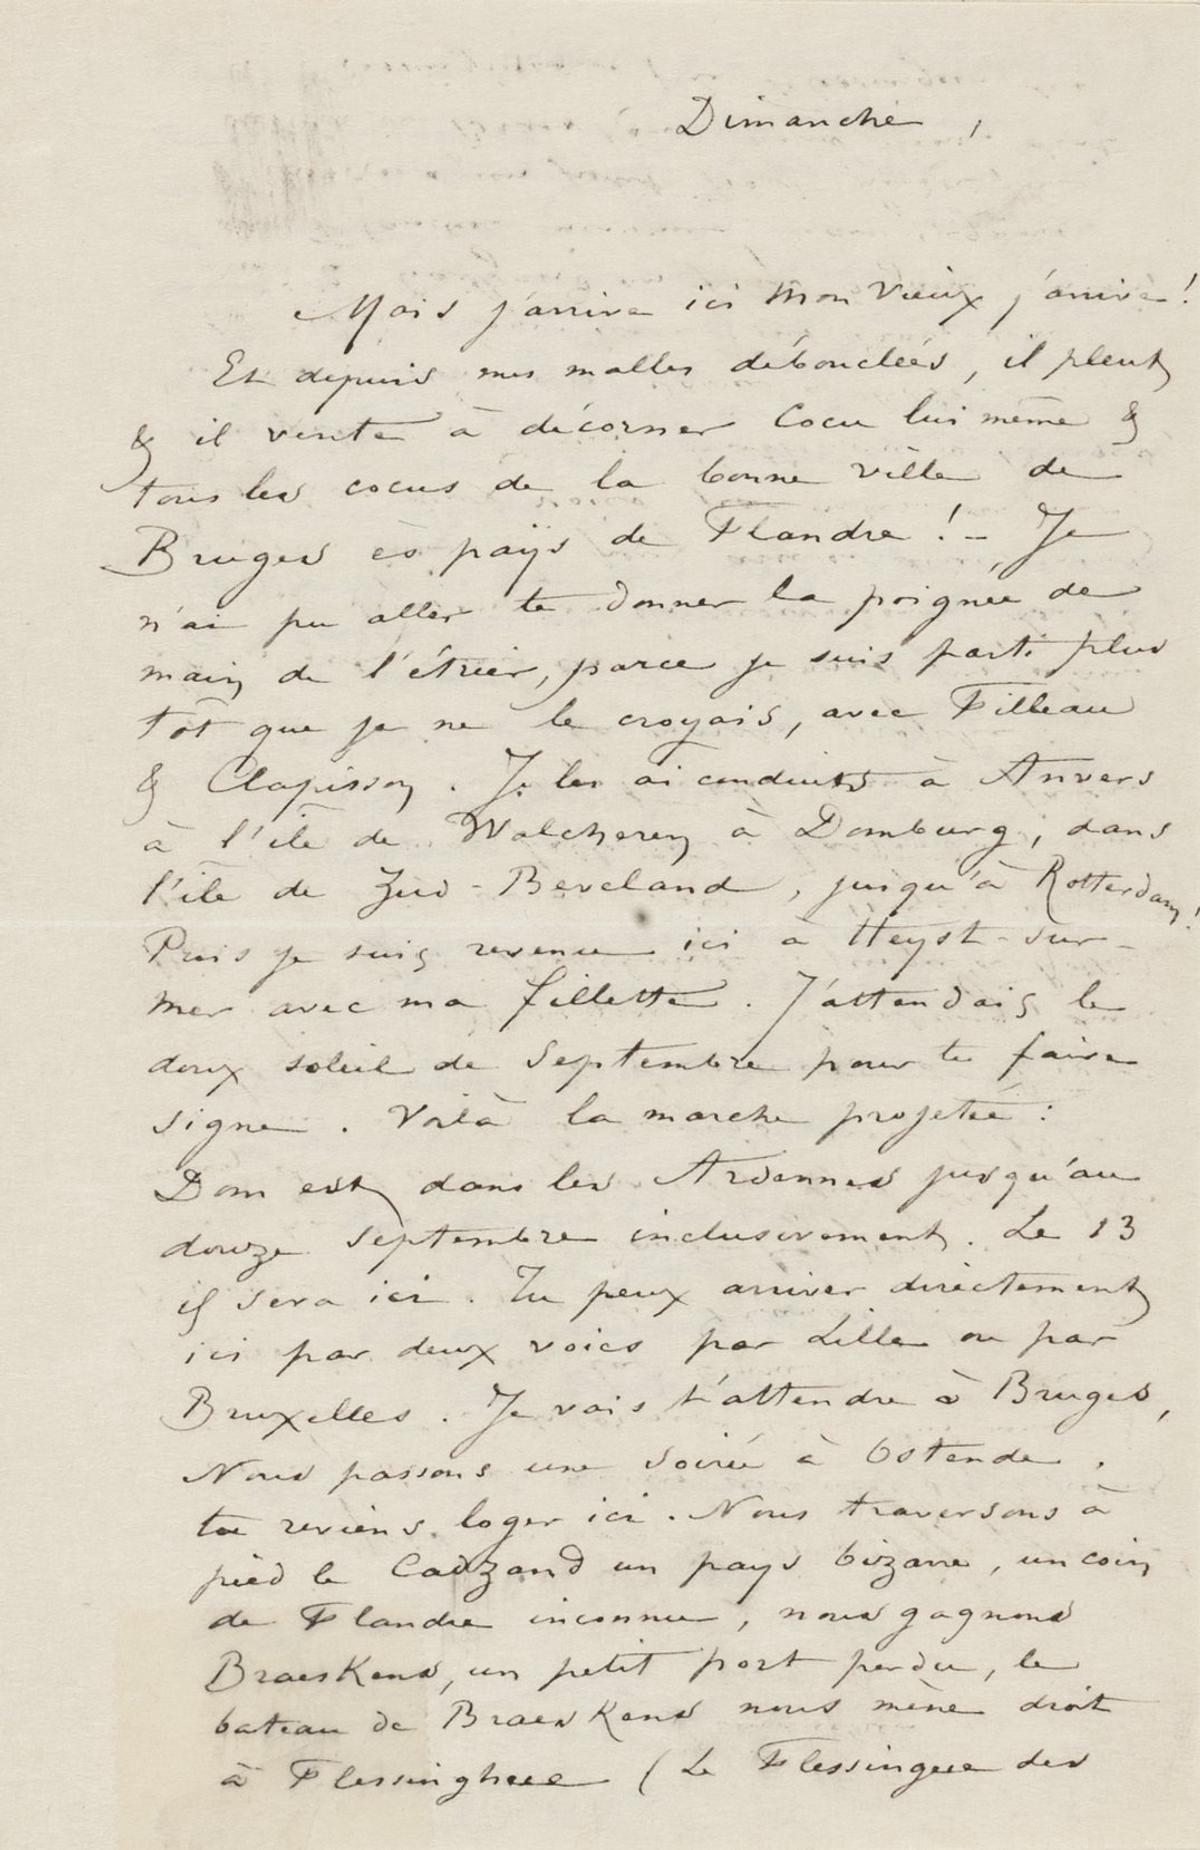 Dimanche,
Mais j'arrive ici mon vieux j'arrive !
Et depuis mes malles débouclées, il pleut
& il vente à décorner Cocu lui même &
tous les cocus de la bonne ville de
Bruges ès pays de Flandre ! – Je
n'ai pu aller te donner la poignée de
main de l'étrier, parce je suis parti plus
tôt que je ne le croyais, avec Filleau
& Clapisson. Je les ai conduits à Anvers
à l'île de Walcheren à Domburg, dans
l'île de Zud-Beveland, jusqu'à Rotterdam !
Puis je suis revenu ici à Heyst-sur-
mer avec ma fillette. J'attendais le
doux soleil de Septembre pour te faire
signe. Voilà la marche projetée :
Dom est dans les Ardennes jusqu'au
douze Septembre inclusivement. Le 13
il sera ici. Tu peux arriver directement
ici par deux voies par Lille ou par
Bruxelles. Je vais t'attendre à Bruges,
Nous passons une soirée à Ostende.
tu reviens loger ici. Nous traversons à
pied le Cadzand un pays bizarre, un coin
de Flandre inconnu, nous gagnons
Braeskens, un petit port perdu, le
bateau de Braeskens nous mène droit
à Flessinghue (Le Flessingue des